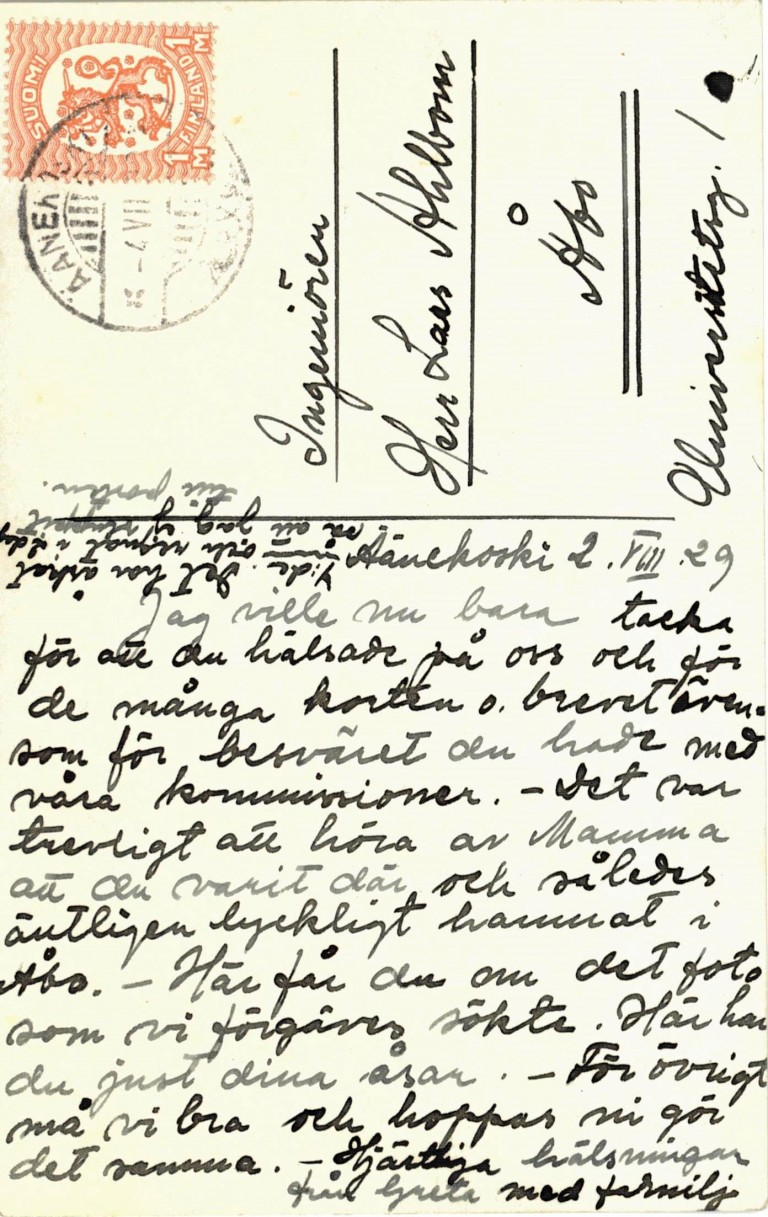 SUOMI
FINLAND
1 M
1 M
ÄÄNEK
4 VII
Ingeniören
Herr Lars Ahlbom
Åbo
Universitetsg. 1
Äänekoski 2. VIII. 29
Jag ville nu bara tacka
för att du hälsade på oss och för
de många korten o. brevet även-
som för besväret du hade med
våra kommissioner. – Det var
trevligt att höra av Mamma
att du varit där och således
äntligen lyckligt hamnat i
Åbo. – Här får du nu det foto
som vi förgäves sökte. Här har
du just dina åsar. – För övrigt
må vi bra och hoppas ni gör
det samma. – Hjärtliga hälsningar
från Greta med familj.
Det har åskat
och regnat i dag
så att jag ej sluppit
till posten.